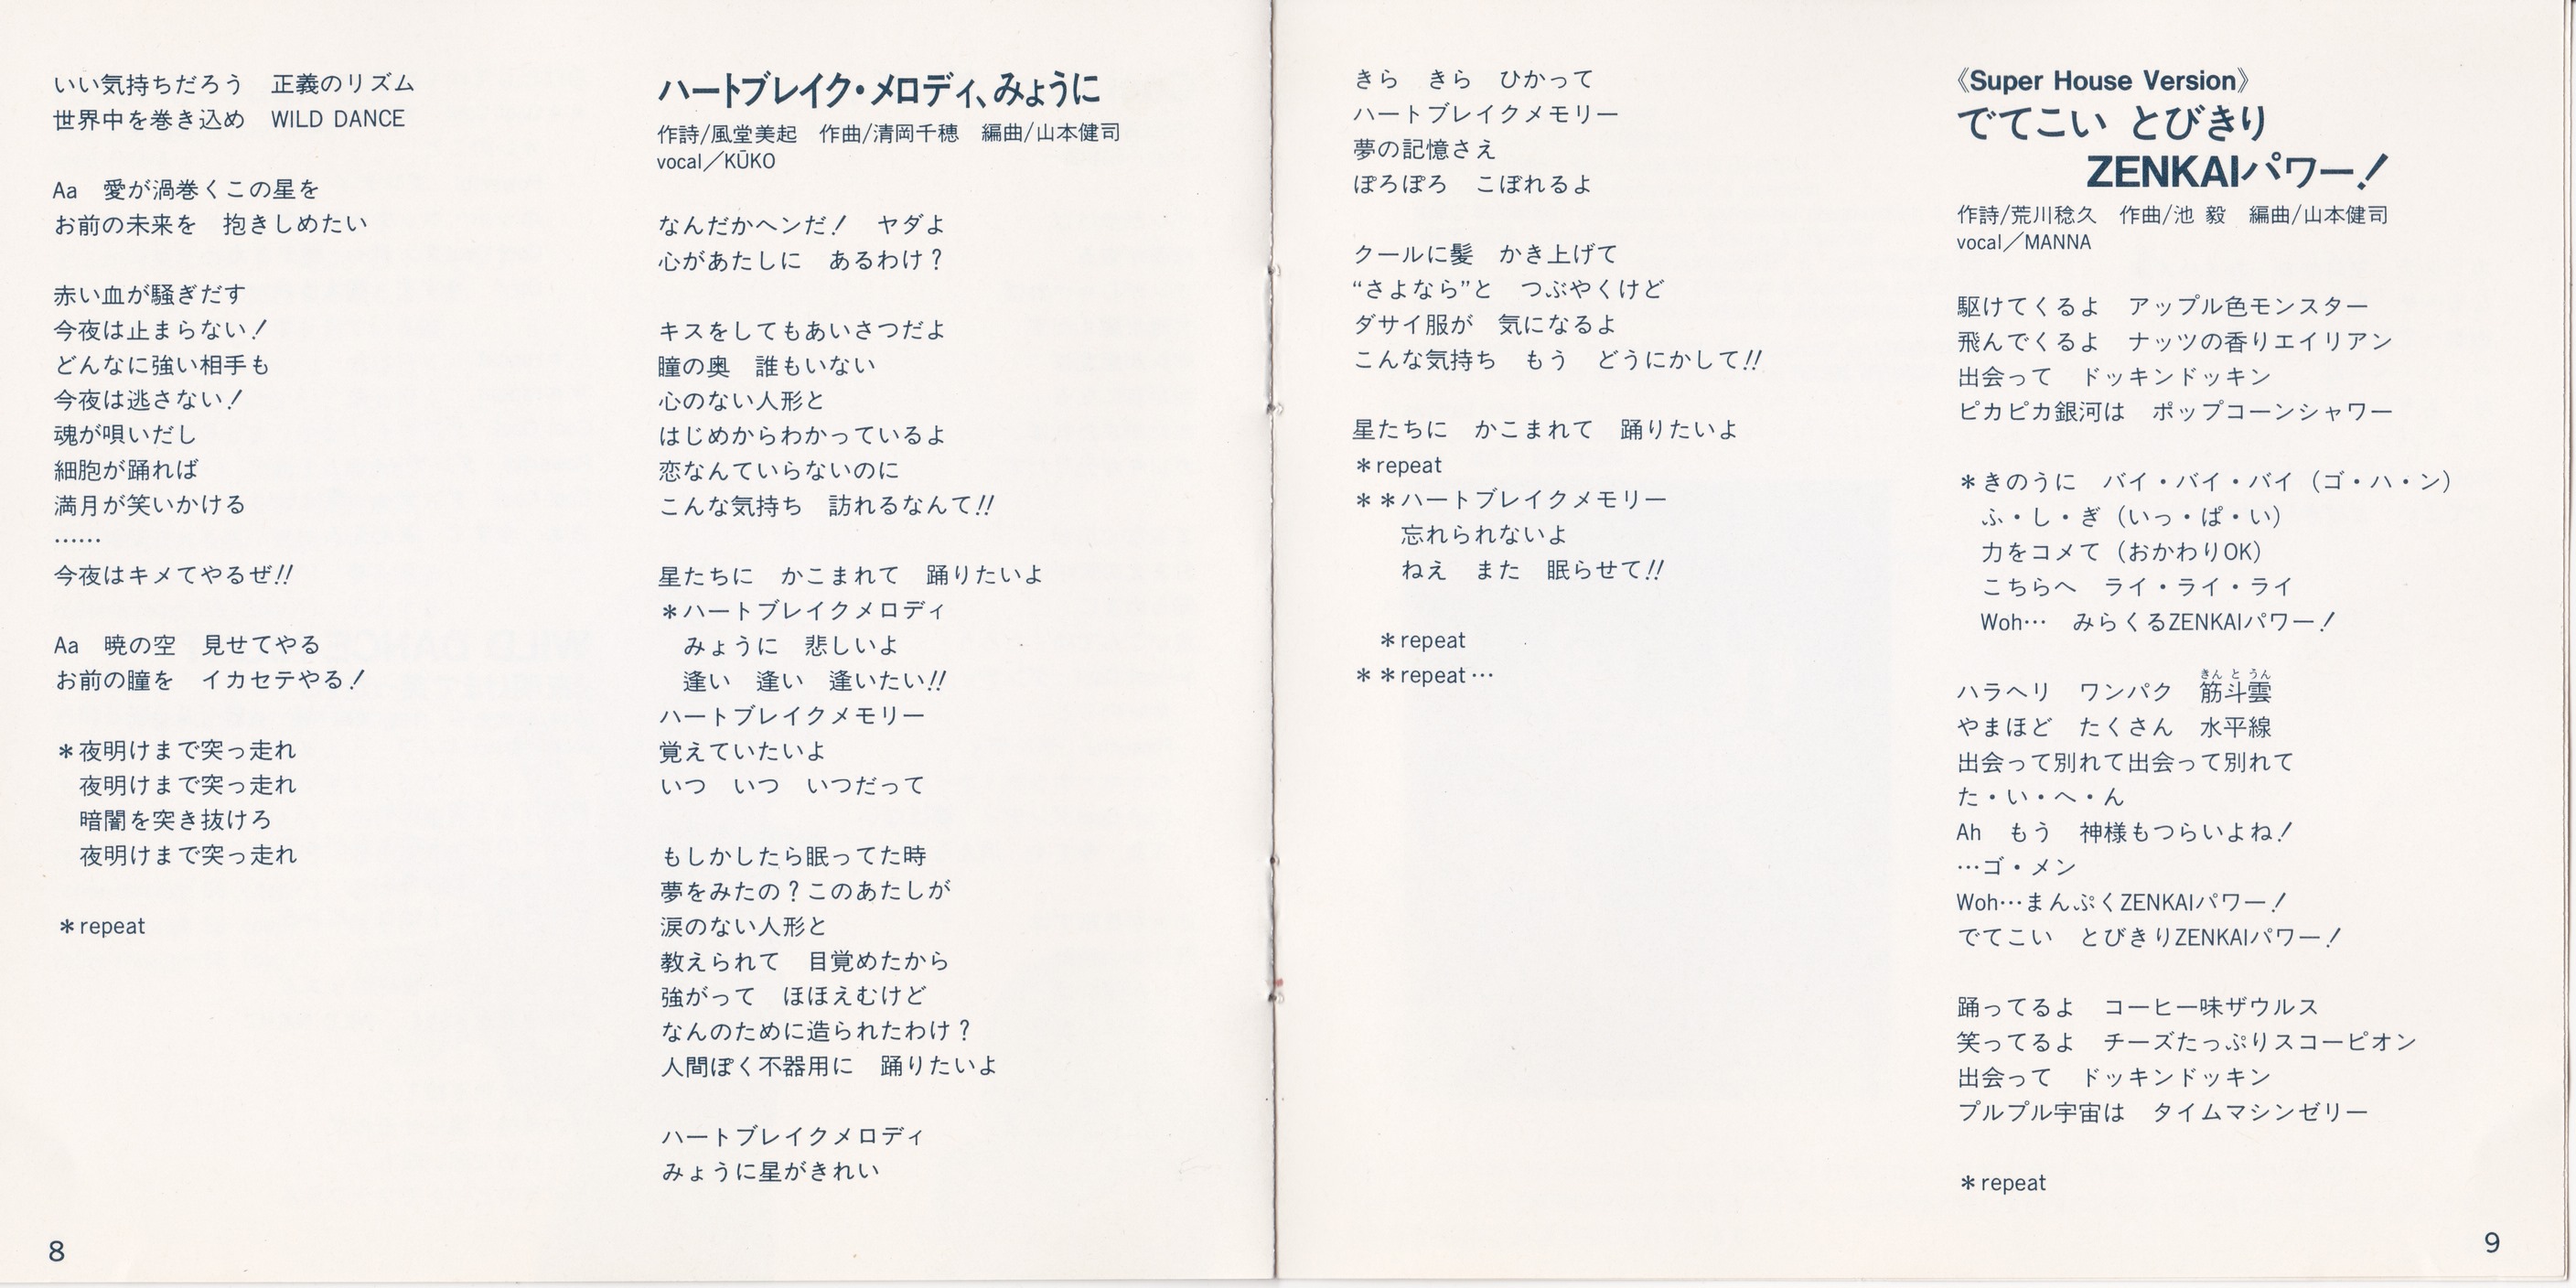 いい気持ちだろう　正義のリズム
世界中を巻き込め　WILD DANCE
Aa　愛が渦巻くこの星を
お前の未来を　抱きしめたい
赤い血が騒ぎだす
今夜は止まらない！
どんなに強い相手も
今夜は逃さない！
魂が唄いだし
細胞が踊れば
満月が笑いかける
……
今夜はキメてやるぜ!!
Aa　暁の空　見せてやる
お前の瞳を　イカセテやる！
＊夜明けまで突っ走れ
夜明けまで突っ走れ
暗闇を突き抜けろ
夜明けまで突っ走れ
＊repeat
8
ハートブレイク・メロディ、みょうに
作詩/風堂美起　作曲/清岡千穂　編曲/山本健司
vocal／KŪKO
なんだかヘンだ！　ヤダよ
心があたしに　あるわけ？
キスをしてもあいさつだよ
瞳の奥　誰もいない
心のない人形と
はじめからわかっているよ
恋なんていらないのに
こんな気持ち　訪れるなんて!!
星たちに　かこまれて　踊りたいよ
＊ハートブレイクメロディ
みょうに　悲しいよ
逢い　逢い　逢いたい!!
ハートブレイクメモリー
覚えていたいよ
いつ　いつ　いつだって
もしかしたら眠ってた時
夢をみたの？このあたしが
涙のない人形と
教えられて　目覚めたから
強がって　ほほえむけど
なんのために造られたわけ？
人間ぽく不器用に　踊りたいよ
ハートブレイクメロディ
みょうに星がきれい
きら　きら　ひかって
ハートブレイクメモリー
夢の記憶さえ
ぽろぽろ　こぼれるよ
クールに髪　かき上げて
“さよなら”と　つぶやくけど
ダサイ服が　気になるよ
こんな気持ち　もう　どうにかして!!
星たちに　かこまれて　踊りたいよ
＊repeat
＊＊ハートブレイクメモリー
忘れられないよ
ねえ　また　眠らせて!!
＊repeat
＊＊repeat…
《Super House Version》
でてこい とびきり
ZENKAIパワー！
作詩/荒川稔久　作曲/池 毅　編曲/山本健司
vocal／MANNA
駆けてくるよ　アップル色モンスター
飛んでくるよ　ナッツの香りエイリアン
出会って　ドッキンドッキン
ピカピカ銀河は　ポップコーンシャワー
＊きのうに　バイ・バイ・バイ（ゴ・ハ・ン）
ふ・し・ぎ（いっ・ぱ・い）
力をコメて（おかわりOK）
こちらへ　ライ・ライ・ライ
Woh…　みらくるZENKAIパワー！
きん と うん
ハラヘリ　ワンパク　筋斗雲
やまほど　たくさん　水平線
出会って別れて出会って別れて
た・い・へ・ん
Ah　もう　神様もつらいよね！
…ゴ・メン
Woh…まんぷくZENKAIパワー！
でてこい　とびきりZENKAIパワー！
踊ってるよ　コーヒー味ザウルス
笑ってるよ　チーズたっぷりスコーピオン
出会って　ドッキンドッキン
プルプル宇宙は　タイムマシンゼリー
＊repeat
9